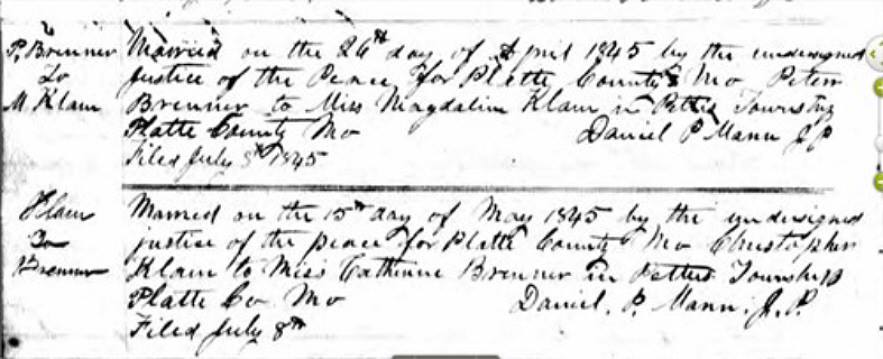 P. Brenner
to
M Klam
Married on the 26th day of April 1845 by the undersigned
Justice of the Peace for Platte County Mo Peter
Brenner to Miss Magdalim Klam in Pettis Township
Platte County Mo
Daniel P Mann J P
Filed July 8th 1845
Klam
To
Brenner
Married on the 15th day of May 1845 by the undersigned
justice of the peace for Platte County Mo Christopher
Klam to Miss Catherine Brenner in Pettis Township
Platte Co Mo
Daniel. P. Mann. J. P.
Filed July 8th